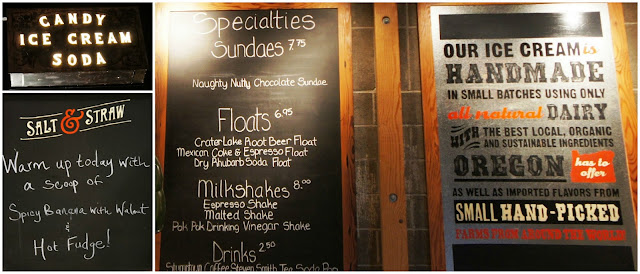 CANDY
ICE CREAM
SODA
SALT & STRAW
Warm up today with
a scoop of
Spicy Banana with Walnut
&
Hot Fudge!
Specialties
Sundaes 7.75
Naughty Nutty Chocolate Sundae
Floats 6.95
Crater Lake Root Beer Float
Mexican Coke & Espresso Float
Dry Rhubarb Soda Float
Milkshakes 8.00
Espresso Shake
Malted Shake
Pok Pok Drinking Vinegar Shake
Drinks 2.50
Stumptown Coffee Steven Smith Tea Soda Pop
OUR ICE CREAM is
HANDMADE
IN SMALL BATCHES USING ONLY
all natural DAIRY
WITH THE BEST LOCAL, ORGANIC
AND SUSTAINABLE INGREDIENTS
OREGON has to
offer
AS WELL AS IMPORTED FLAVORS FROM
SMALL HAND-PICKED
FARMS FROM AROUND THE WORLD!